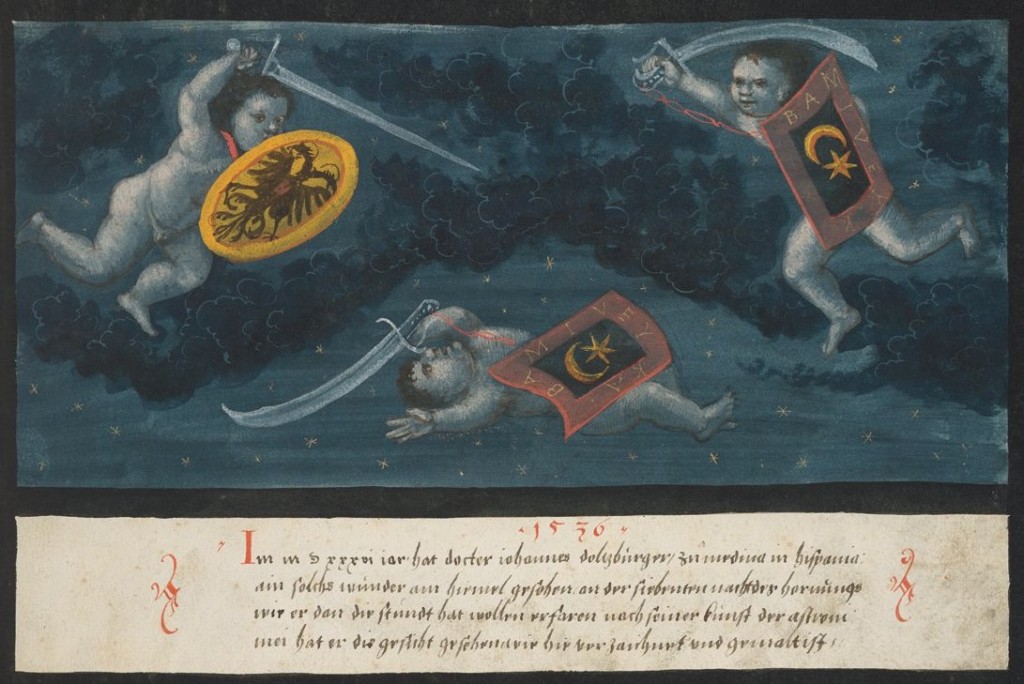 BAMIVE
BAMIVEYKA
·1536·
Im m d xxxvi iar hat docter iohannes dolzbürger / zu medina in hispania
ain solchs wünder am hiemel gesehen an der siebenten nacht des hornüngs
wie er dan die stundt hat wollen erfaren nach seiner kunst der astrom
mei hat er die gesicht gesehen wie hie verzaichnet vnd gemalt ist